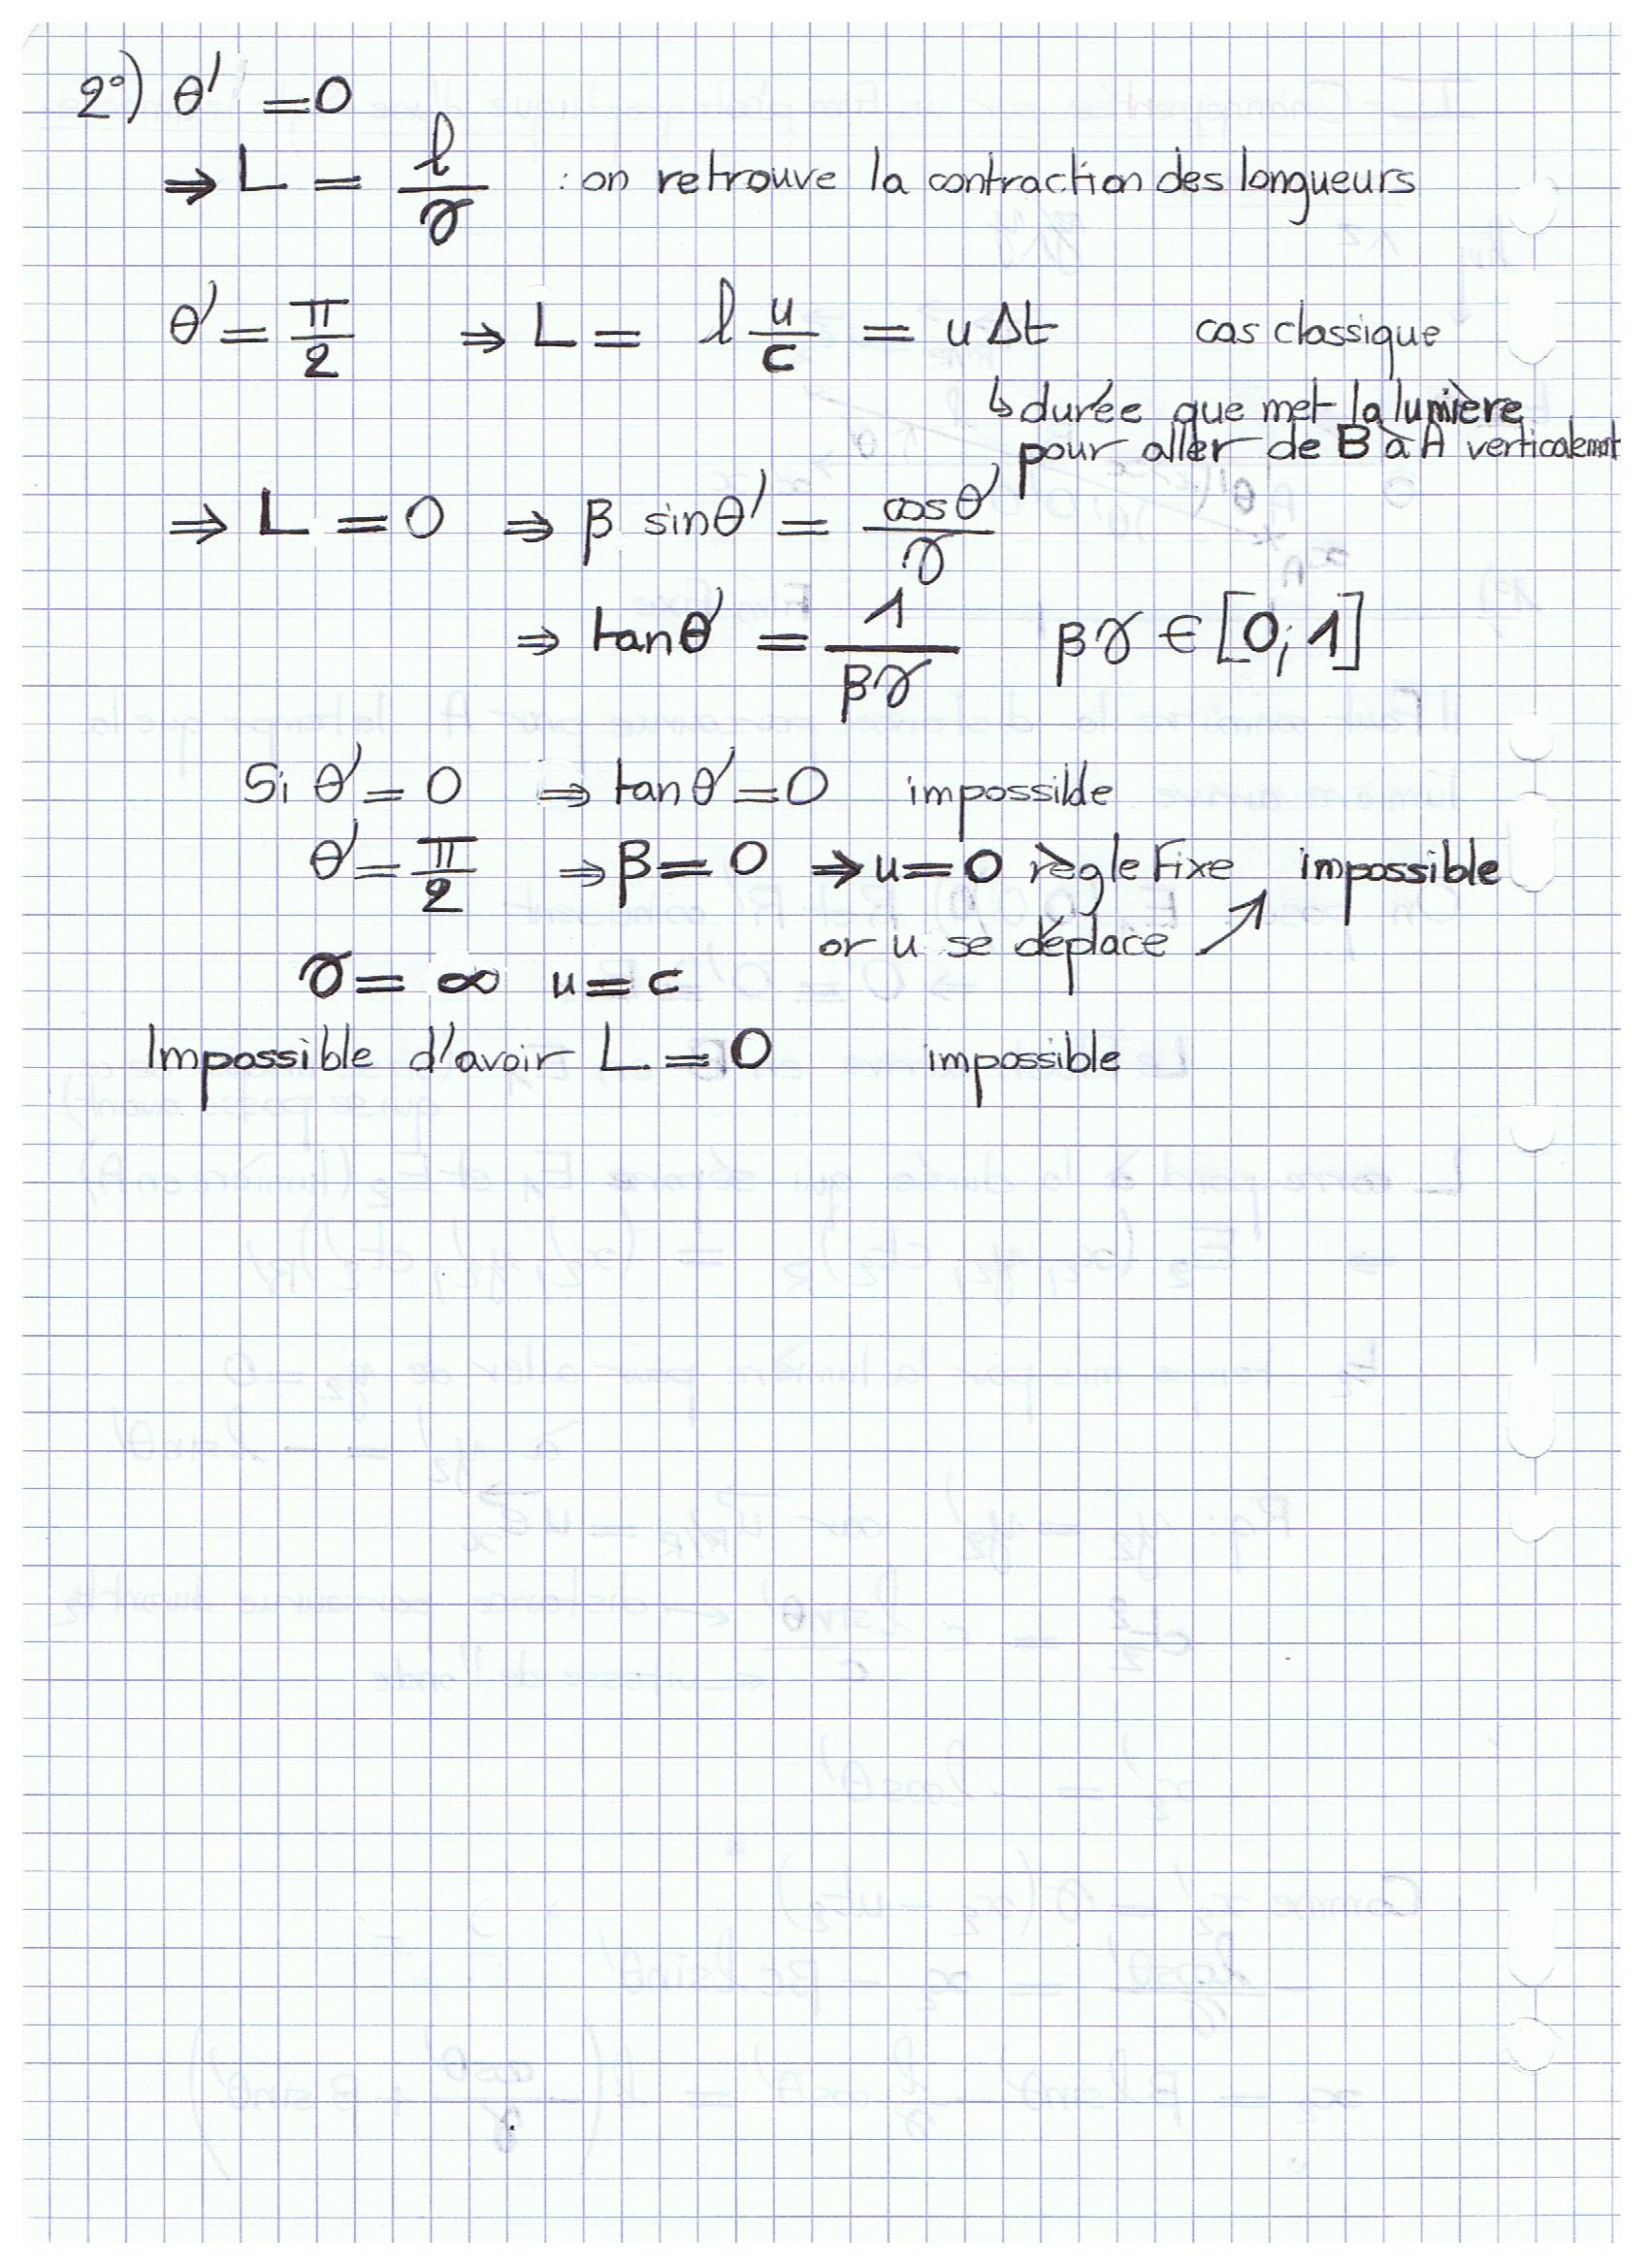 2°) θ' = 0
⇒ L = l/γ : on retrouve la contraction des longueurs
θ' = π/2 ⇒ L = l u/c = u Δt cas classique
↳ durée que met la lumière
pour aller de B à A verticalemnt
⇒ L = 0 ⇒ β sinθ' = cosθ'/γ
⇒ tanθ' = 1/βγ βγ ∈ [0; 1]
Si θ' = 0 ⇒ tanθ' = 0 impossible
θ' = π/2 ⇒ β = 0 ⇒ u = 0 règle Fixe impossible
or u se déplace ↗
γ = ∞ u = c
Impossible d'avoir L = 0 impossible